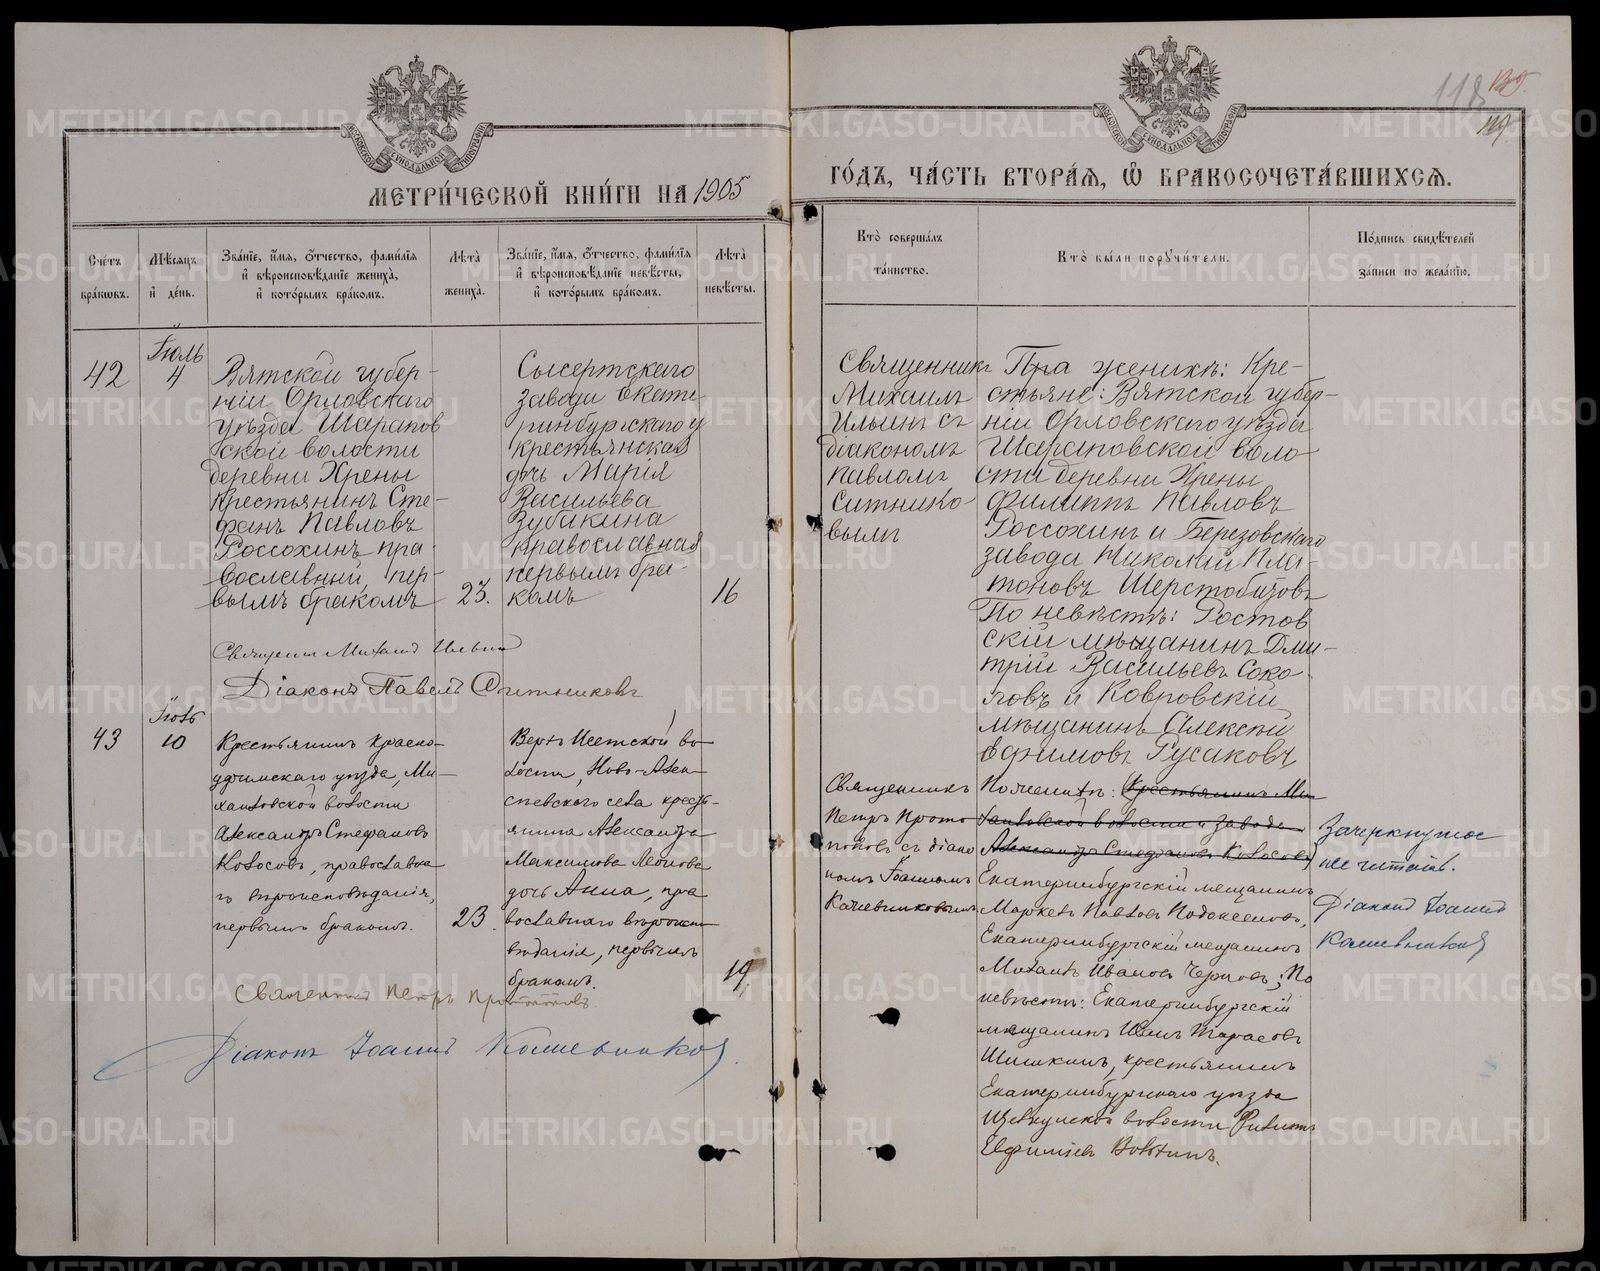 118
119.
МОСКОВСКОЙ СѴНОДАЛЬНОЙ ТИПОГРАФІИ
МОСКОВСКОЙ СѴНОДАЛЬНОЙ ТИПОГРАФІИ
МЕТРИ́ЧЕСКОЙ КНИ́ГИ НА 1905
ГО́ДЪ, ЧА́СТЬ ВТОРА́Ѧ, Ѿ БРАКОСОЧЕТА́ВШИХСѦ.
Сче́тъ бра́кѡвъ.
Мѣ́сяцъ и҆ де́нь.
Зва́нїе, и҆́мя, ѻ҆́тчество, фами́лїя
и҆ вѣроисповѣ́данїе жениха̀,
и҆ кото́рымъ бра́комъ.
Лѣ́та жениха̀.
Зва́нїе, и҆́мя, ѻ҆́тчество, фами́лїя
и҆ вѣроисповѣ́данїе невѣ́сты,
и҆ кото́рымъ бра́комъ.
Лѣ́та невѣ́сты.
Кто̀ соверша́лъ
та́инство.
Кто̀ бы́ли порꙋчи́тели.
По́дпись свидѣ́телей
за́писи по жела́нїю.
42
Іюль
4
Вятской губер-
ніи Орловскаго
уѣзда Шаранов
ской волости
деревни Хрены
крестьянинъ Сте-
фанъ Павловъ
Россохинъ пра-
вославный, пер-
вымъ бракомъ
23.
Сысертскаго
завода Екате
ринбургскаго у
крестьянская
дочь Марія
Васильева
Зубакина
православная
первымъ бра-
комъ
16
Священникъ
Михаилъ
Ильинъ съ
діакономъ
Павломъ
Ситнико
вымъ
По женихѣ: Кре-
стьяне: Вятской губер-
ніи Орловскаго уѣзда
Шарановской воло
сти деревни Хрены
Филиппъ Павловъ
Россохинъ и Березовскаго
завода Николай Пла-
тоновъ Шерстобитовъ
По невѣстѣ: Ростов
скій мѣщанинъ Дми-
трій Васильевъ Соко-
ловъ и Ковровскій
мѣщанинъ Алексѣй
Ефимовъ Русаковъ
Священникъ Михаилъ Ильинъ
Діаконъ Павелъ Ситниковъ
43
Іюль
10
Крестьянинъ Красно-
уфимскаго уѣзда, Ми-
хайловской волости
Александръ Стефановъ
Колосовъ, православна
го вѣроисповѣданія,
первымъ бракомъ.
23.
Верхъ Исетской во
лости, Ново-Алек-
сѣевскаго села кресть-
янина Александра
Максимова Леонова
дочь Анна, пра
вославнаго вѣроиспо
вѣданія, первымъ
бракомъ.
19.
Священникъ
Петръ Прото
поповъ съ діако
номъ Іоанномъ
Кашевниковымъ
По женихѣ: Крестьянинъ Ми
хайловской волости и завода
Александръ Стефановъ Колосовъ
Екатеринбургскій мѣщанинъ
Маркелъ Павловъ
Екатеринбургскій мещанинъ
Михаилъ Ивановъ Черновъ; По
невѣстѣ: Екатеринбургскій
мѣщанинъ Иванъ Тарасовъ
Шишкинъ, крестьянинъ
Екатеринбургскаго уѣзда
волости Филиппъ
Евфиміевъ
Зачеркнутое
не читать.
Діаконъ Іоаннъ
Кашевниковъ
Священникъ Петръ Протопоповъ
Діаконъ Іоаннъ Кашевниковъ.
METRIKI.GASO-URAL.RU